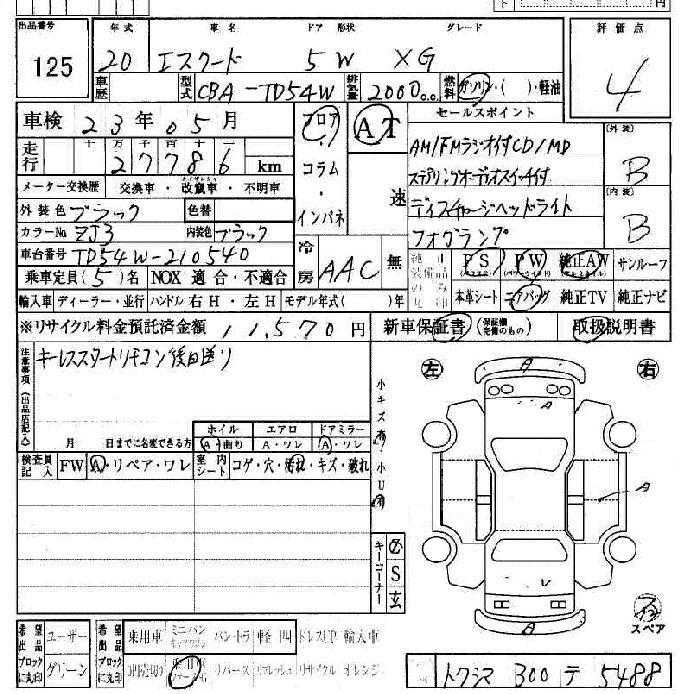 円
出品番号 125
年式 20
車名 エスクード
ドア 形状 5W
グレード XG
評価点 4
車歴
型式 CBA-TD54W
排気量 2000c.c.
燃料 ガソリン・( )・軽油
車検 23年05月
フロア・コラム・インパネ
AT
速
セールスポイント
AM/FMラジオ付CD/MD
ステアリングオーディオスイッチ付
ディスチャージヘッドライト
フォグランプ
外装 B
内装 B
走行 十 万 千 百 十
27786 km
メーター交換歴 交換車・改竄車・不明車
外装色 ブラック 色替
カラーNo ZJ3 内装色 ブラック
車台番号 TD54W-210540
冷房 AAC 無
PS PW 純正AW サンルーフ
本革シート エアバッグ 純正TV 純正ナビ
乗車定員(5)名 NOX 適合・不適合
輸入車 ディーラー・並行 ハンドル 右H・左H モデル年式( )年
※リサイクル料金預託済金額 11,570円
新車保証書(保証欄完備のもの) 取扱説明書
注意事項(出品店記入)
キーレススタートリモコン後日送り
月 日までに名変できる方
ホイル エアロ ドアミラー
A・曲り A・ワレ A・ワレ
検査員記入 FW A・リペア・ワレ
室内シート コゲ・穴・汚れ・キズ・破れ
小キズ有
小U有
左 右
A
A
A
V
A
キーコーナー S 玄
スペア
希望出品 ユーザー
ブロックに丸印 グリーン
希望出品 乗用車 ミニバン バントラ 軽 四 ドレスUP 輸入車
ブロックに丸印 リバース リフレッシュ リサイクル オレンジ
トワシス 300 テ 5488